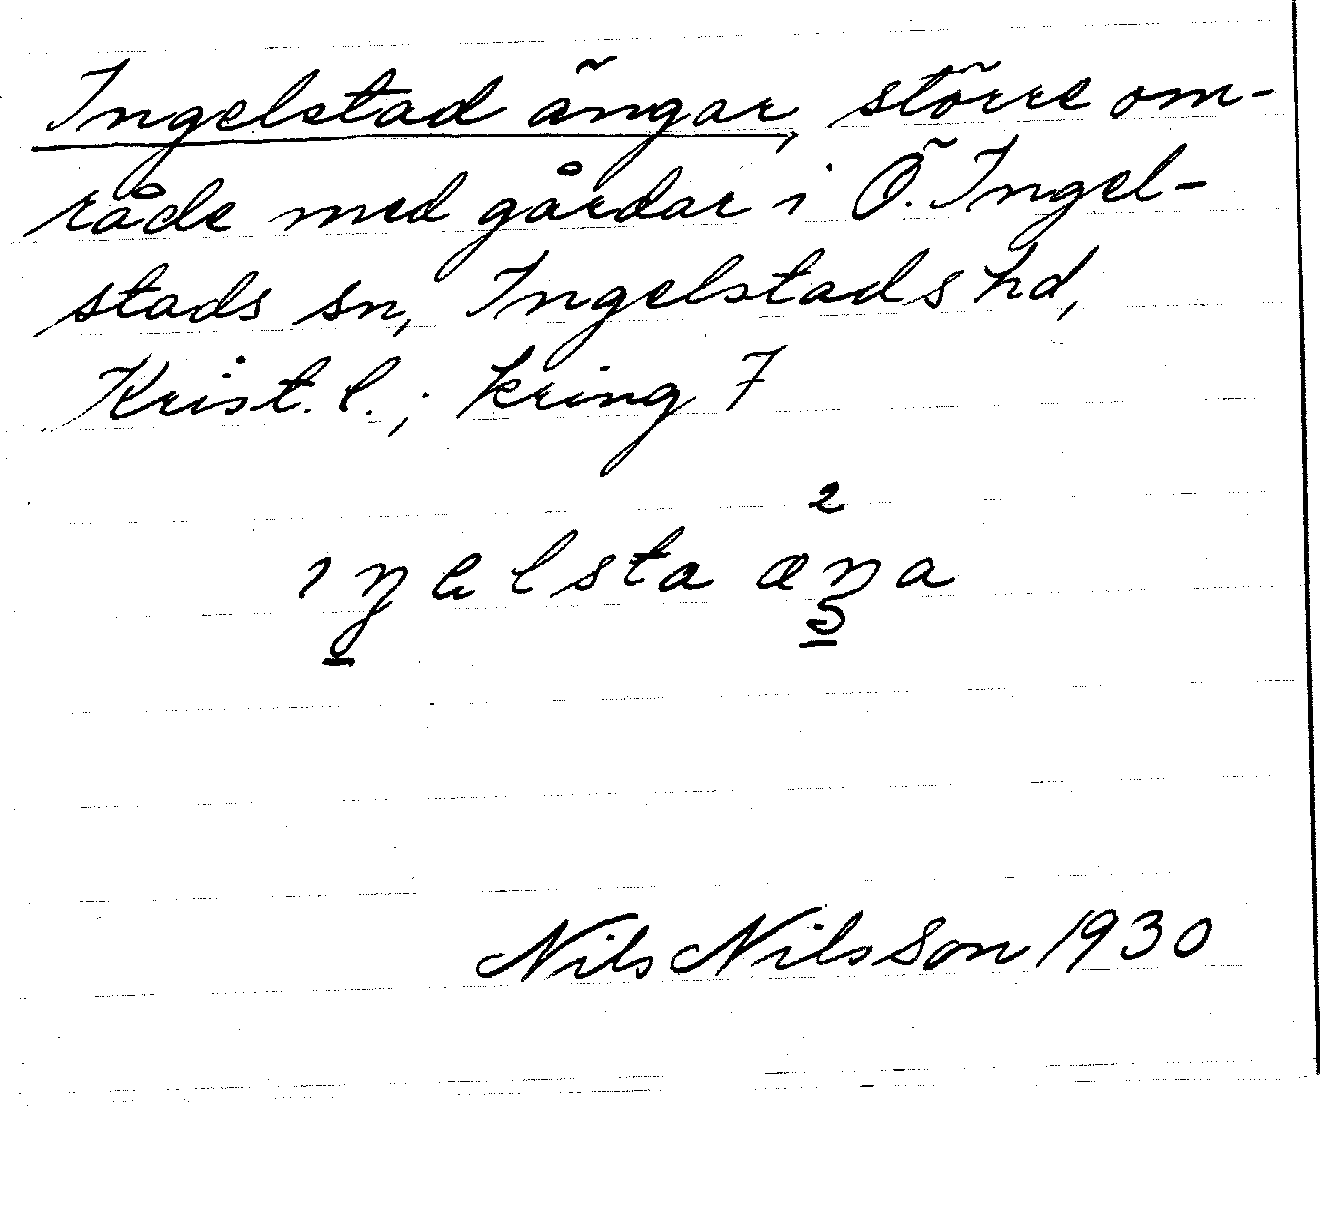 Ingelstad ängar, större om-
råde med gårdar i Ö. Ingel-
stads sn, Ingelstads hd,
Krist. l.; kring 7
2
ıŋəlsta æŋa
5
Nils Nilsson 1930